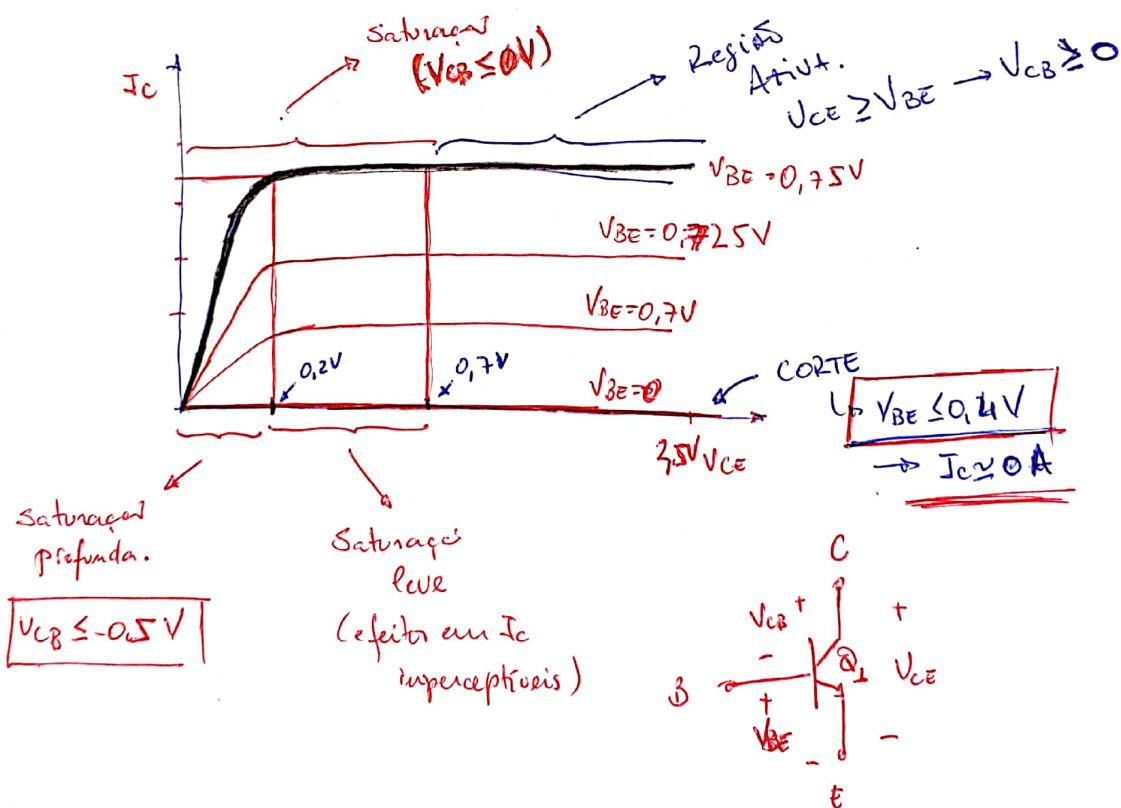 Saturação
(VCB ≤ 0V)
Região
Ativa.
VCE ≥ VBE → VCB ≥ 0
IC
VBE = 0,75V
VBE = 0,725V
VBE = 0,7V
0,2V
0,7V
VBE = 0
CORTE
↳ VBE ≤ 0,4V
→ IC ≃ 0 A
VCE
Saturação
profunda.
VCB ≤ -0,5 V
Saturação
leve
(efeitos em IC
imperceptíveis)
C
VCB + +
- Q1 VCE
B
+
VBE -
-
E